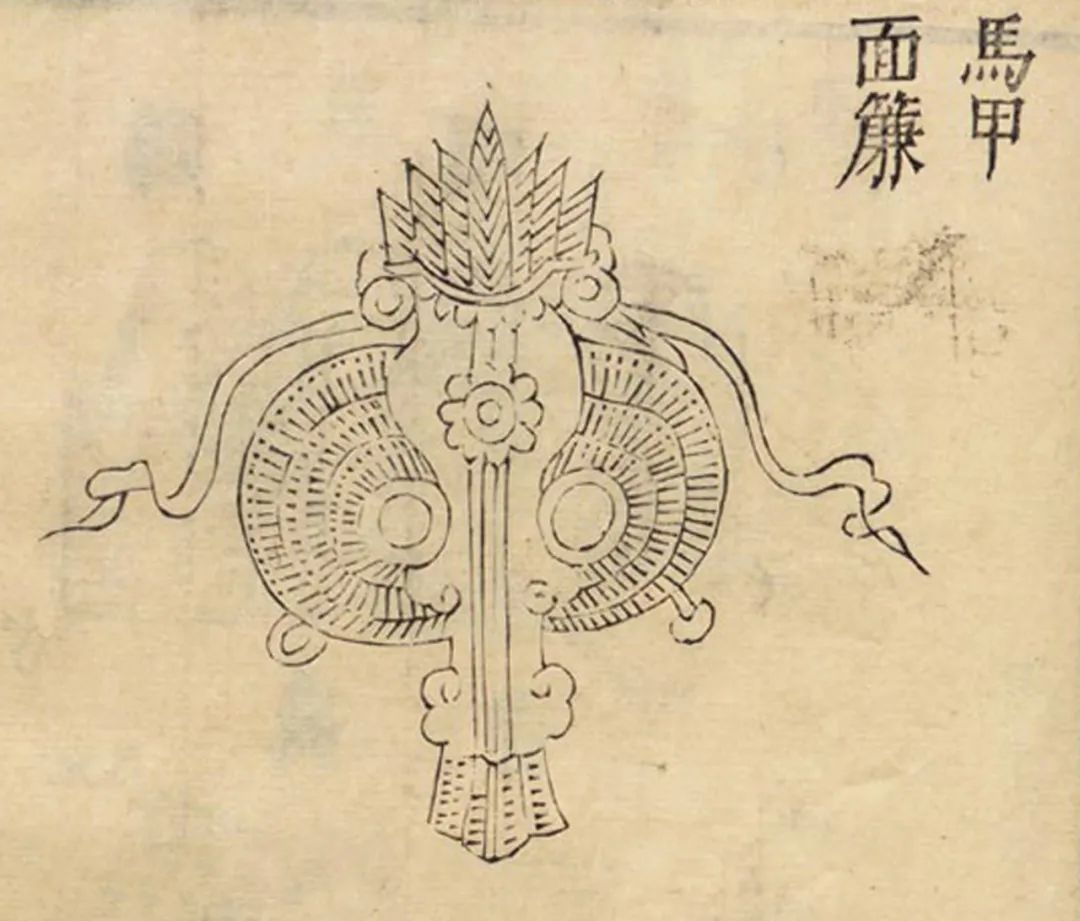 馬甲
面簾